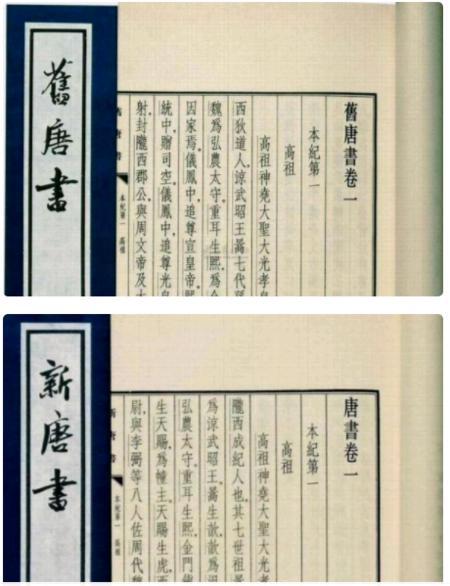 舊唐書
舊唐書卷一
本紀第一
高祖
高祖神堯大聖大光孝皇
西狄道人涼武昭王暠七代孫
魏為弘農太守重耳生熙為金
因家焉儀鳳中追尊宣皇帝
統中贈司空儀鳳中追尊光皇
射封隴西郡公與周文帝及太
舊唐書
本紀第一 高祖
新唐書
唐書卷一
本紀第一
高祖
高祖神堯大聖大光孝
隴西成紀人也其七世祖暠
為涼武昭王暠生歆歆為
弘農太守重耳生熙金門鎮
生天賜為幢主天賜生虎西
尉與李弼等八人佐周代魏
新唐書
本紀第一 高祖